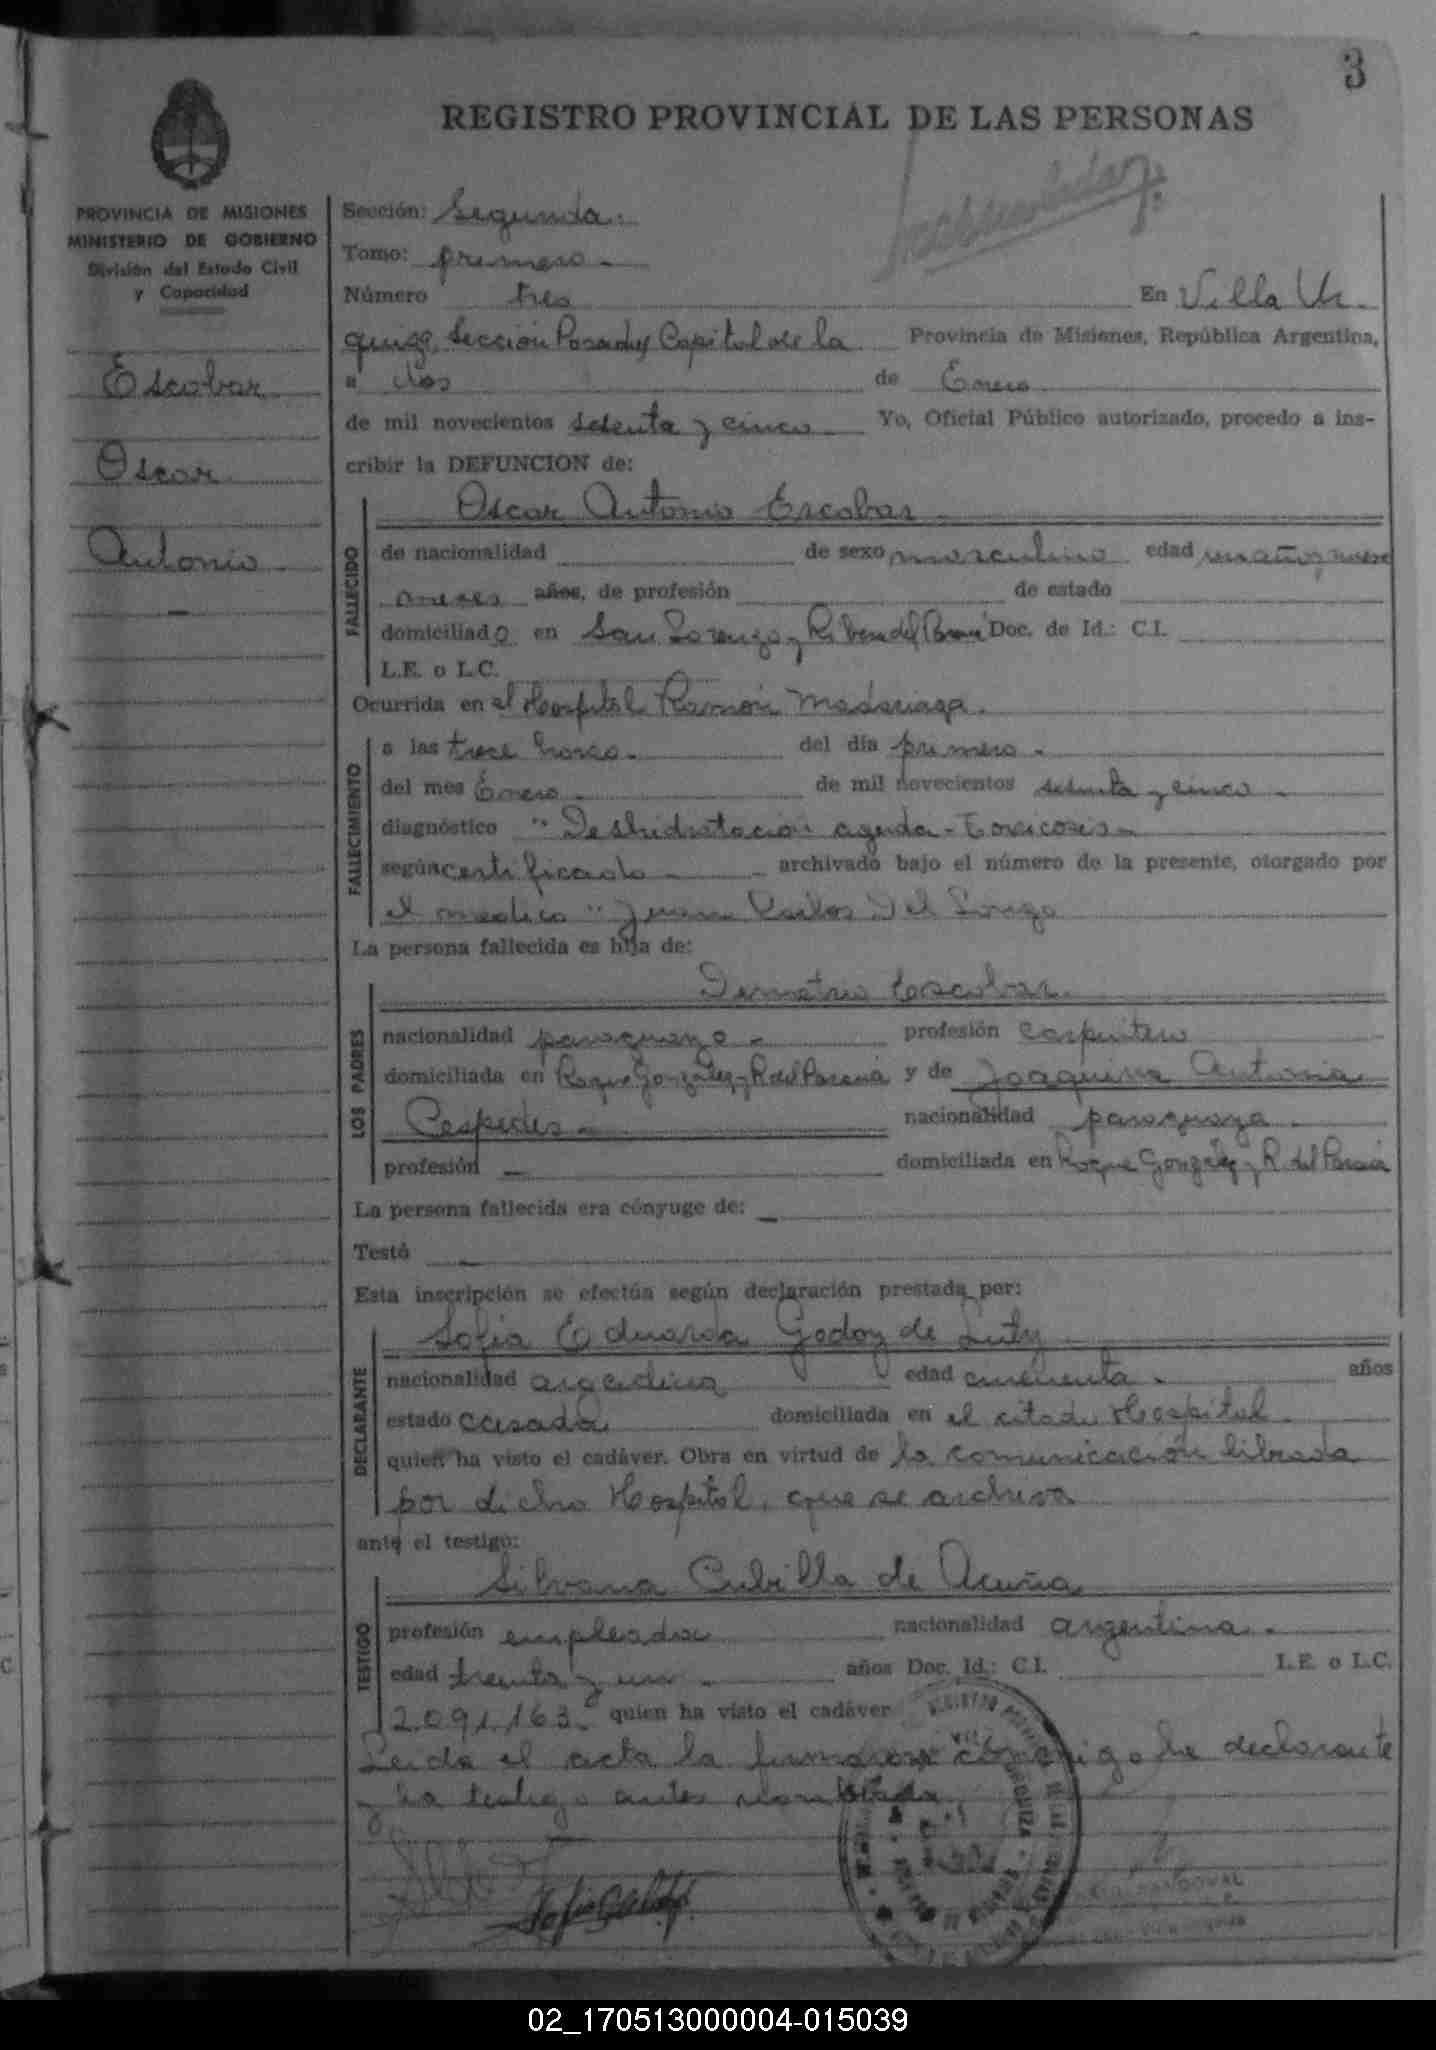 3
REGISTRO PROVINCIAL DE LAS PERSONAS
PROVINCIA DE MISIONES
MINISTERIO DE GOBIERNO
División del Estado Civil
y Capacidad
Escobar
Oscar
Antonio
Sección: Segunda
Tomo: primero
Número tres En Villa Ur
quiza, Sección Posadas Capital de la Provincia de Misiones, República Argentina,
a dos de Enero
de mil novecientos setenta y cinco Yo, Oficial Público autorizado, procedo a ins-
cribir la DEFUNCION de:
Oscar Antonio Escobar
FALLECIDO
de nacionalidad de sexo masculino edad un año y nueve
meses años, de profesión de estado
domiciliado en San Lorenzo y R. del Paraná Doc. de Id.: C.I.
L.E. o L.C.
Ocurrida en el Hospital Ramón Madariaga.
FALLECIMIENTO
a las trece horas. del día primero
del mes Enero de mil novecientos setenta y cinco
diagnóstico "Deshidratación aguda - Toxicosis
según certificado archivado bajo el número de la presente, otorgado por
el medico "Juan Carlos Del
La persona fallecida es hija de:
Demetrio Escobar
LOS PADRES
nacionalidad paraguayo profesión carpintero
domiciliada en Roque González y R. del Paraná y de Joaquina Antonia
Cespedes nacionalidad paraguaya
profesión — domiciliada en Roque González y R. del Paraná
La persona fallecida era cónyuge de: —
Testó —
Esta inscripción se efectúa según declaración prestada por:
Sofia Eduarda Godoy de
DECLARANTE
nacionalidad argentina edad cincuenta años
estado casada domiciliada en el citado Hospital
quien ha visto el cadáver. Obra en virtud de la comunicación librada
por dicho Hospital, que se archiva
ante el testigo:
Silvana Cubilla de Acuña
TESTIGO
profesión empleada nacionalidad argentina
edad treinta y un años Doc. Id.: C.I. L.E. o L.C.
2.091.163 quien ha visto el cadáver
Leida el acta la firmaron conmigo la declarante
y la testigo antes nombrada
02_170513000004-015039